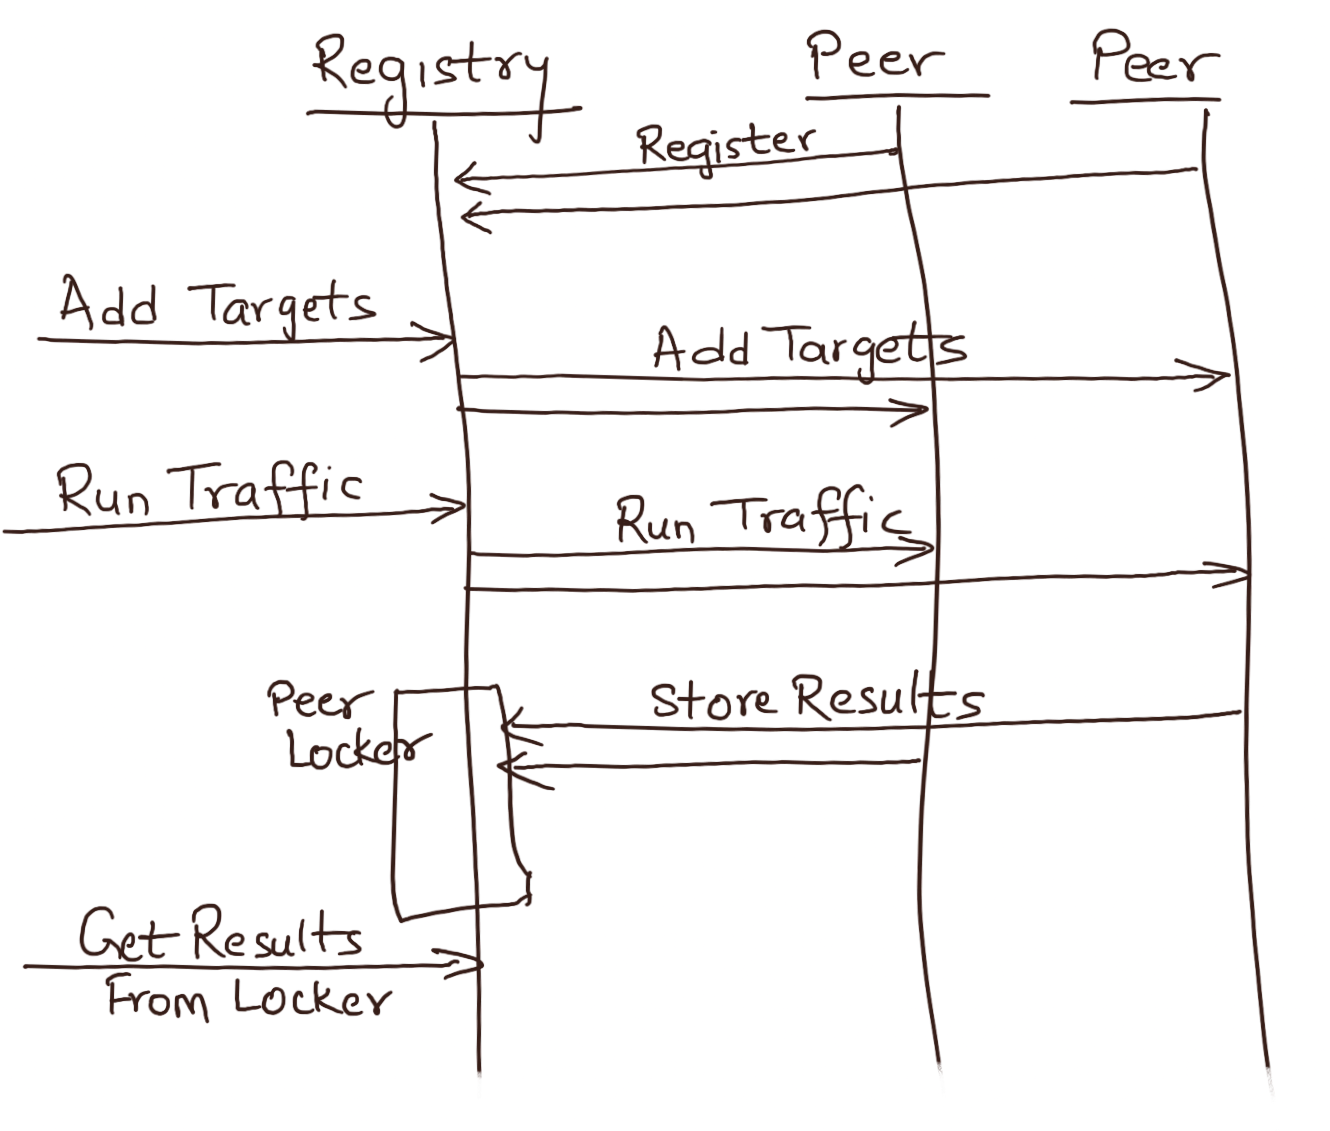 Registry
Peer
Peer
Register
Add Targets
Add Targets
Run Traffic
Run Traffic
Store Results
Peer
Locker
Get Results
From Locker